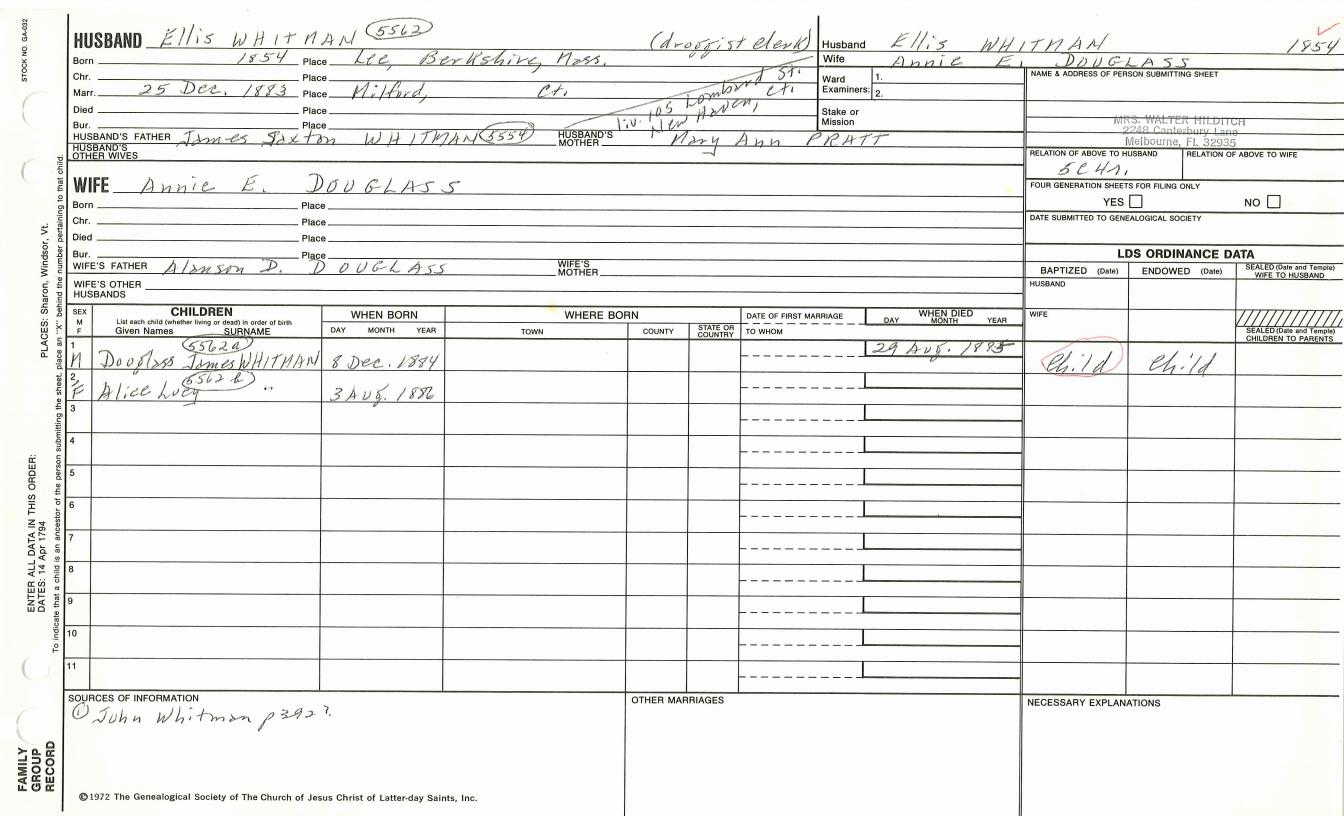 STOCK NO. GA-032
HUSBAND Ellis WHITMAN 5562 (droggist clerk)
Born 1854 Place Lee, Berkshire, Mass.
Chr. Place
Marr. 25 Dec. 1883 Place Milford, Ct.
Died Place
Bur. Place
liv. 105 Lombard St.
New Haven, Ct.
HUSBAND'S FATHER James Saxton WHITMAN 5554 HUSBAND'S MOTHER Mary Ann PRATT
HUSBAND'S OTHER WIVES
WIFE Annie E. DOUGLASS
Born Place
Chr. Place
Died Place
Bur. Place
WIFE'S FATHER Alanson D. DOUGLASS WIFE'S MOTHER
WIFE'S OTHER HUSBANDS
Husband Ellis WHITMAN 1854
Wife Annie E. DOUGLASS
Ward Examiners: 1.
2.
Stake or Mission
NAME & ADDRESS OF PERSON SUBMITTING SHEET
MRS. WALTER HILDITCH
2248 Canterbury Lane
Melbourne, FL 32935
RELATION OF ABOVE TO HUSBAND RELATION OF ABOVE TO WIFE
5C4r.
FOUR GENERATION SHEETS FOR FILING ONLY
YES NO
DATE SUBMITTED TO GENEALOGICAL SOCIETY
LDS ORDINANCE DATA
BAPTIZED (Date) ENDOWED (Date) SEALED (Date and Temple) WIFE TO HUSBAND
HUSBAND
WIFE
SEALED (Date and Temple) CHILDREN TO PARENTS
SEX M F
CHILDREN
List each child (whether living or dead) in order of birth
Given Names SURNAME
WHEN BORN
DAY MONTH YEAR
WHERE BORN
TOWN COUNTY STATE OR COUNTRY
DATE OF FIRST MARRIAGE
TO WHOM
WHEN DIED
DAY MONTH YEAR
5562a
1 M Douglass James WHITMAN 8 Dec. 1884 29 Aug. 1885 Child Child
5562b
2 F Alice Lucy " 3 Aug. 1886
3
4
5
6
7
8
9
10
11
SOURCES OF INFORMATION
① John Whitman p392?.
OTHER MARRIAGES
NECESSARY EXPLANATIONS
©1972 The Genealogical Society of The Church of Jesus Christ of Latter-day Saints, Inc.
FAMILY GROUP RECORD
ENTER ALL DATA IN THIS ORDER:
DATES: 14 Apr 1794
PLACES: Sharon, Windsor, Vt.
To indicate that a child is an ancestor of the person submitting the sheet, place an "X" behind the number pertaining to that child.